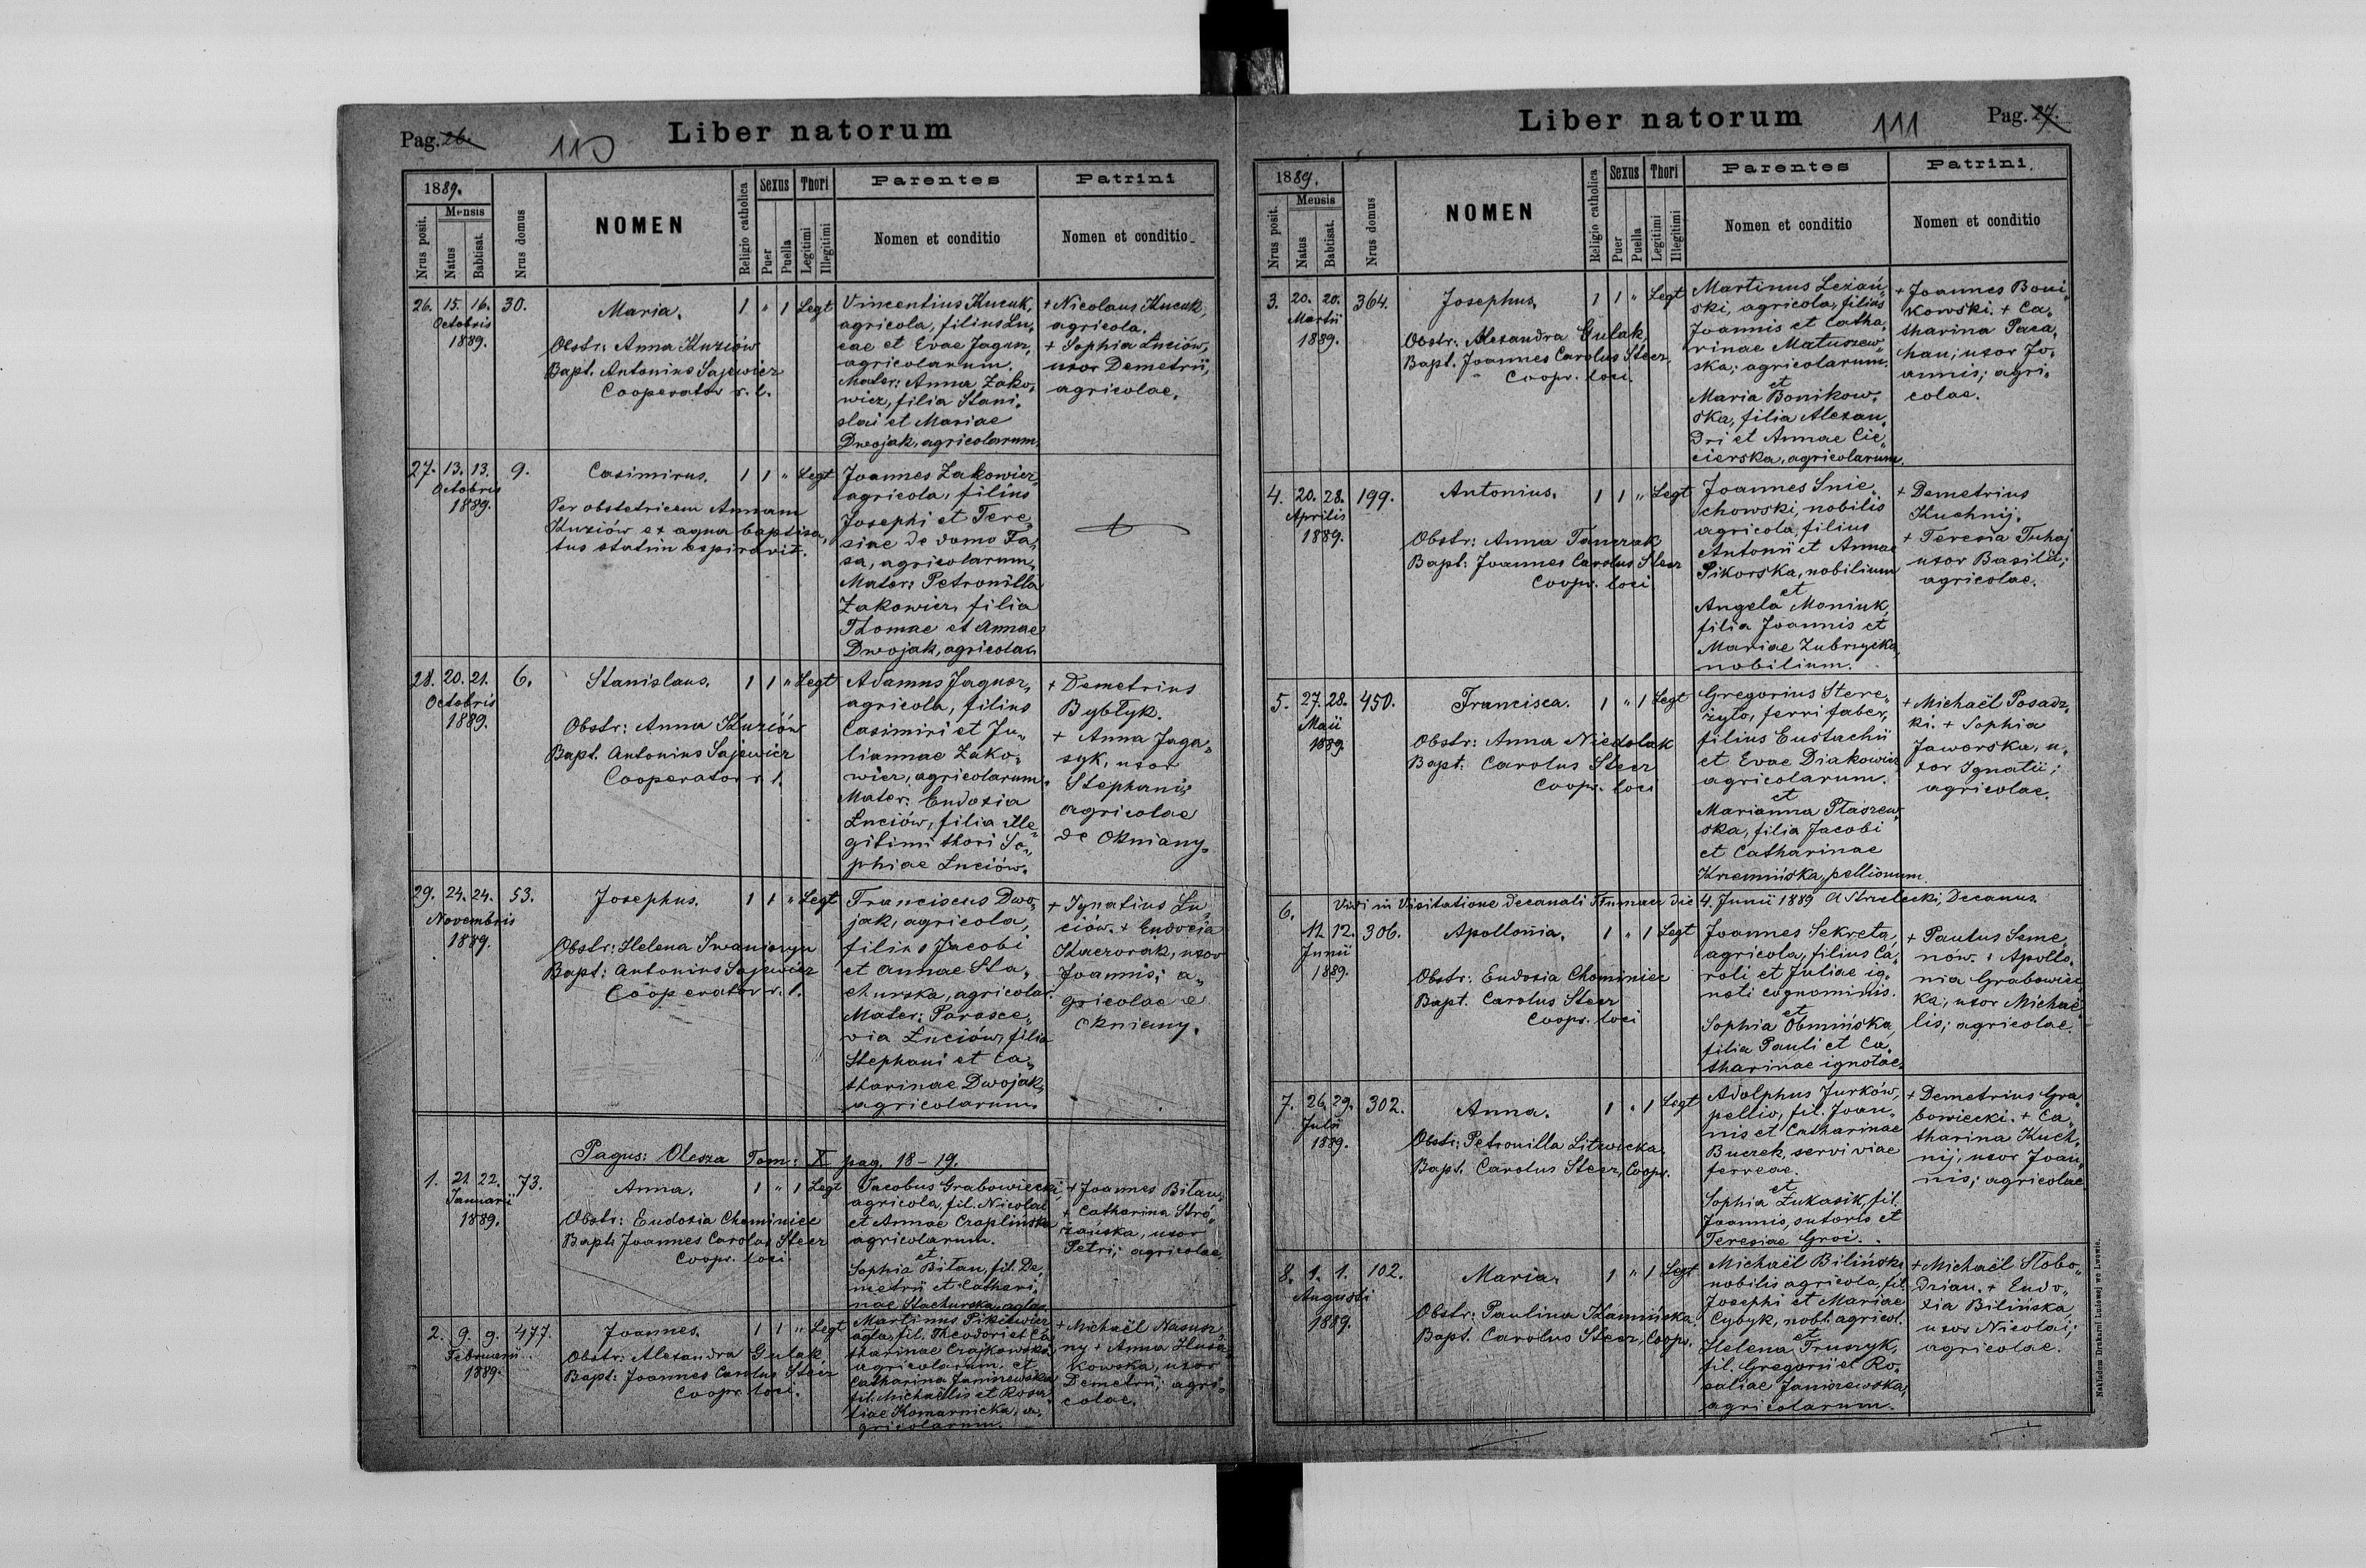 Pag. 26.
110
Liber natorum
1889.
Nrus posit.
Mensis
Natus
Babtisat.
Nrus domus
NOMEN
Religio catholica
Sexus
Puer
Puella
Thori
Legitimi
Illegitimi
Parentes
Nomen et conditio
Patrini
Nomen et conditio
26. 15. 16. 30.
Octobris
1889.
Maria. 1 " 1 Legt
Obstr: Anna Kuziów
Bapt. Antonius Sajewicz
Cooperator r. l.
Vincentius Kucuk,
agricola, filius Lu„
cae et Evae Jagusz,
agricolarum.
Mater: Anna Zako„
wicz, filia Stani„
slai et Mariae
Dwojak, agricolarum.
+ Nicolaus Kucuk,
agricola.
+ Sophia Łuciów,
uxor Demetrii,
agricolae.
27. 13. 13. 9.
Octobris
1889.
Casimirus. 1 1 " Legt
Per obstetricem Annam
Kuziów ex aqua baptisa„
tus statim expiravit.
Joannes Zakowicz,
agricola, filius
Josephi et Tere„
siae de domo Fa„
sa, agricolarum,
Mater: Petronilla
Zakowicz, filia
Thomae et Annae
Dwojak, agricolar.
28. 20. 21. 6.
Octobris
1889.
Stanislaus. 1 1 " Legt
Obstr: Anna Kuziów
Bapt. Antonius Sajewicz
Cooperator r. l.
Adamus Jagusz,
agricola, filius
Casimiri et Ju„
liannae Zako„
wicz, agricolarum.
Mater: Eudoxia
Łuciów, filia ille„
gitimi thori So„
phiae Łuciów.
+ Demetrius
Bybłyk.
+ Anna Jaga„
syk, uxor
Stephani;
agricolae
de Okniany.
29. 24. 24. 53.
Novembris
1889.
Josephus. 1 1 " Legt
Obstr: Helena Iwaniszyn
Bapt: Antonius Sajewicz
Cooperator r. l.
Franciscus Dwo„
jak, agricola,
filius Jacobi
et Annae Sta„
churska, agricolar.
Mater: Parasce„
via Łuciów, filia
Stephani et Ca„
tharinae Dwojak,
agricolarum.
+ Ignatius Łu„
ciów. + Eudocia
Kaczorak, uxor
Joannis; a„
gricolae e
Okniany.
Pagus: Olesza Tom: X pag. 18-19.
1. 21. 22. 73.
Januarii
1889.
Anna. 1 " 1 Legt
Obstr: Eudoxia Chominiec
Bapt: Joannes Carolus Steer
Coopr. loci.
Jacobus Grabowiecki,
agricola, fil. Nicolai
et Annae Czaplińska
agricolarum.
et
Sophia Bitan, fil. De„
metrii et Cathari„
nae Stachurska, aglar.
+ Joannes Bitan.
+ Catharina Stró„
żańska, uxor
Petri; agricolae.
2. 9. 9. 477.
Februarii
1889.
Joannes. 1 1 " Legt
Obstr: Alexandra Gulak
Bapt: Joannes Carolus Steer
Coopr. loci.
Martinus Pikiewicz
agla, fil. Theodori et Ca„
tharinae Czajkowska
agricolarum. et
Catharina Janiszewska
fil. Michaëlis et Rosa„
liae Komarnicka, a„
gricolarum.
+ Michaël Nasusz„
ny + Anna Husa„
kowska, uxor
Demetrii; agri„
colae.
Liber natorum
111
Pag. 27.
1889.
Nrus posit.
Mensis
Natus
Babtisat.
Nrus domus
NOMEN
Religio catholica
Sexus
Puer
Puella
Thori
Legitimi
Illegitimi
Parentes
Nomen et conditio
Patrini.
Nomen et conditio
3. 20. 20. 364.
Martii
1889.
Josephus. 1 1 " Legt
Obstr: Alexandra Gulak
Bapt. Joannes Carolus Steer
Coopr. loci.
Martinus Leżań„
ski, agricola, filius
Joannis et Catha„
rinae Matuszew„
ska; agricolarum.
et
Maria Bonikow„
ska, filia Alexan„
dri et Annae Cie„
cierska, agricolarum.
+ Joannes Boni„
kowski. + Ca„
tharina Paca„
han; uxor Jo„
annis; agri„
colae.
4. 20. 28. 199.
Aprilis
1889.
Antonius. 1 1 " Legt
Obstr: Anna Tanczak
Bapt: Joannes Carolus Steer
Coopr. loci
Joannes Snie„
chowski, nobilis
agricola, filius
Antonii et Annae
Sikorska, nobilium
et
Angela Moniuk,
filia Joannis et
Mariae Zubrzycka,
nobilium.
+ Demetrius
Kuchnij.
+ Teresia Tuhaj
uxor Basilii;
agricolae.
5. 27. 28. 450.
Maii
1889.
Francisca. 1 " 1 Legt
Obstr: Anna Niedolak
Bapt: Carolus Steer
Coopr. loci
Gregorius Stere„
żyło, ferri faber,
filius Eustachii
et Evae Diakowicz
agricolarum.
et
Marianna Ptaszew„
ska, filia Jacobi
et Catharinae
Krzemińska, pellionum.
+ Michaël Posadz„
ki. + Sophia
Jaworska, u„
xor Ignatii;
agricolae.
Vidi in Visitatione decanali Tłumacz die 4. Junii 1889 A Strzelecki, Decanus.
6. 11. 12. 306.
Junii
1889.
Apollonia. 1 " 1 Legt
Obstr: Eudoxia Chominiec
Bapt. Carolus Steer
Coopr. loci
Joannes Sekreta,
agricola, filius Ca„
roli et Juliae ig„
noti cognominis.
et
Sophia Obmińska,
filia Pauli et Ca„
tharinae ignotae.
+ Paulus Seme„
now. + Apollo„
nia Grabowiec„
ka; uxor Michaë„
lis; agricolae.
7. 26. 29. 302.
Julii
1889.
Anna. 1 " 1 Legt
Obstr: Petronilla Litwicka
Bapt. Carolus Steer, Coopr.
Adolphus Jurków,
pellio, fil. Joan„
nis et Catharinae
Buczek, servi viae
ferreae.
et
Sophia Łukasik, fil.
Joannis, sutoris et
Teresiae Groi.
+ Demetrius Gra„
bowiecki. + Ca„
tharina Kuch„
nij; uxor Joan„
nis; agricolae
8. 1. 1. 102.
Augusti
1889.
Maria. 1 " 1 Legt
Obstr: Paulina Kamińska.
Bapt. Carolus Steer, Coopr.
Michaël Biliński
nobilis agricola, fil.
Josephi et Mariae
Cybyk, nobl. agricol.
et
Helena Truszyk,
fil. Gregorii et Ro„
saliae Janiszewska,
agricolarum.
+ Michaël Słobo„
dzian. + Eudo„
xia Bilińska,
uxor Nicolai;
agricolae.
Nakładem Drukarni Ludowej we Lwowie.